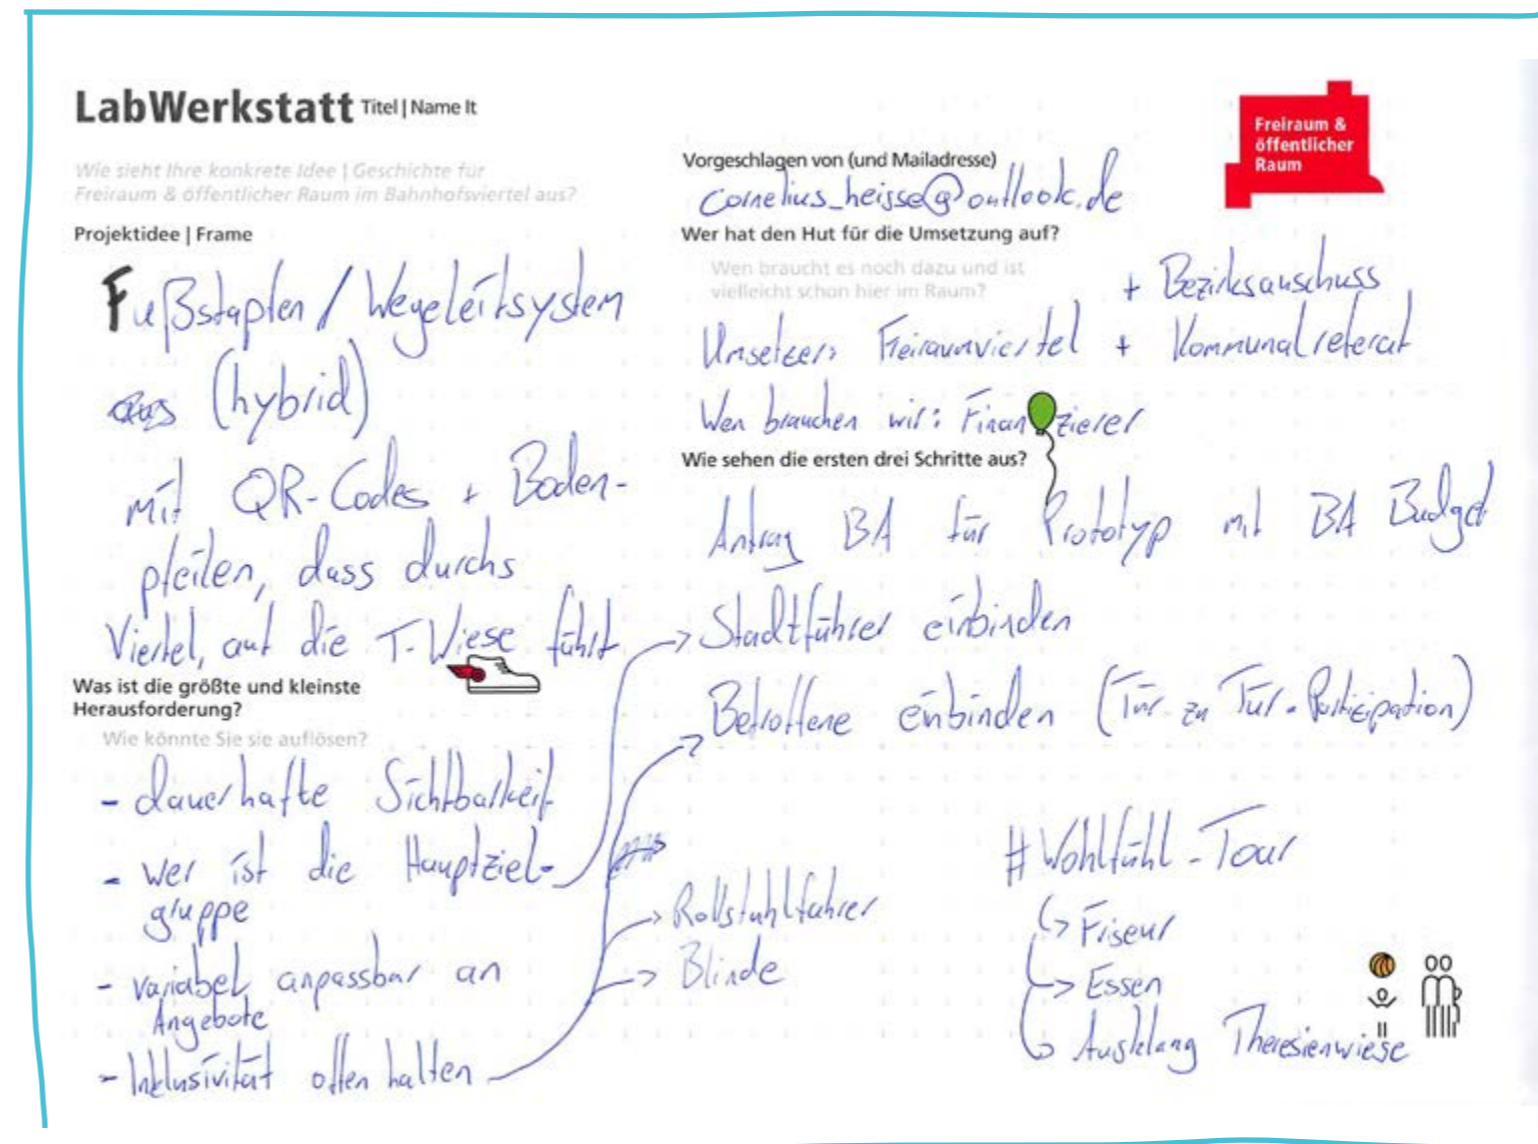 LabWerkstatt Titel | Name It
Wie sieht Ihre konkrete Idee | Geschichte für
Freiraum & öffentlicher Raum im Bahnhofsviertel aus?
Projektidee | Frame
Fußstapfen / Wegeleitsystem
(hybrid)
mit QR-Codes + Boden-
pfeilen, dass durchs
Viertel, auf die T-Wiese führt
Was ist die größte und kleinste
Herausforderung?
Wie könnte Sie sie auflösen?
- dauerhafte Sichtbarkeit
- wer ist die Hauptziel-
gruppe
- variabel anpassbar an
Angebote
- Inklusivität offen halten
Vorgeschlagen von (und Mailadresse)
cornelius_heisse@outlook.de
Wer hat den Hut für die Umsetzung auf?
Wen braucht es noch dazu und ist
vielleicht schon hier im Raum?
+ Bezirksauschuss
Umsetzer: Freiraumviertel + Kommunalreferat
Wen brauchen wir: Finanzierer
Wie sehen die ersten drei Schritte aus?
Antrag BA für Prototyp mit BA Budget
-> Stadtführer einbinden
Betroffene einbinden (Tür zu Tür-Participation)
-> Rollstuhlfahrer
-> Blinde
#Wohlfühl-Tour
-> Friseur
-> Essen
-> Ausklang Theresienwiese
Freiraum &
öffentlicher
Raum